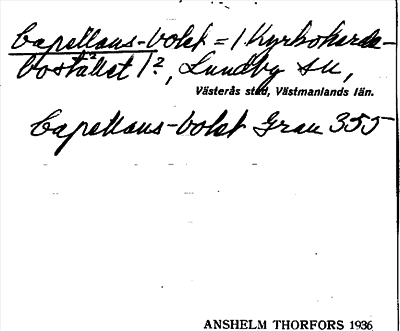 Capellans-bolet = 1 Kyrkoherde-
bostället 1², Lundby sn,
Västerås stad, Västmanlands län.
Capellans-bolet Grau 355
ANSHELM THORFORS 1936